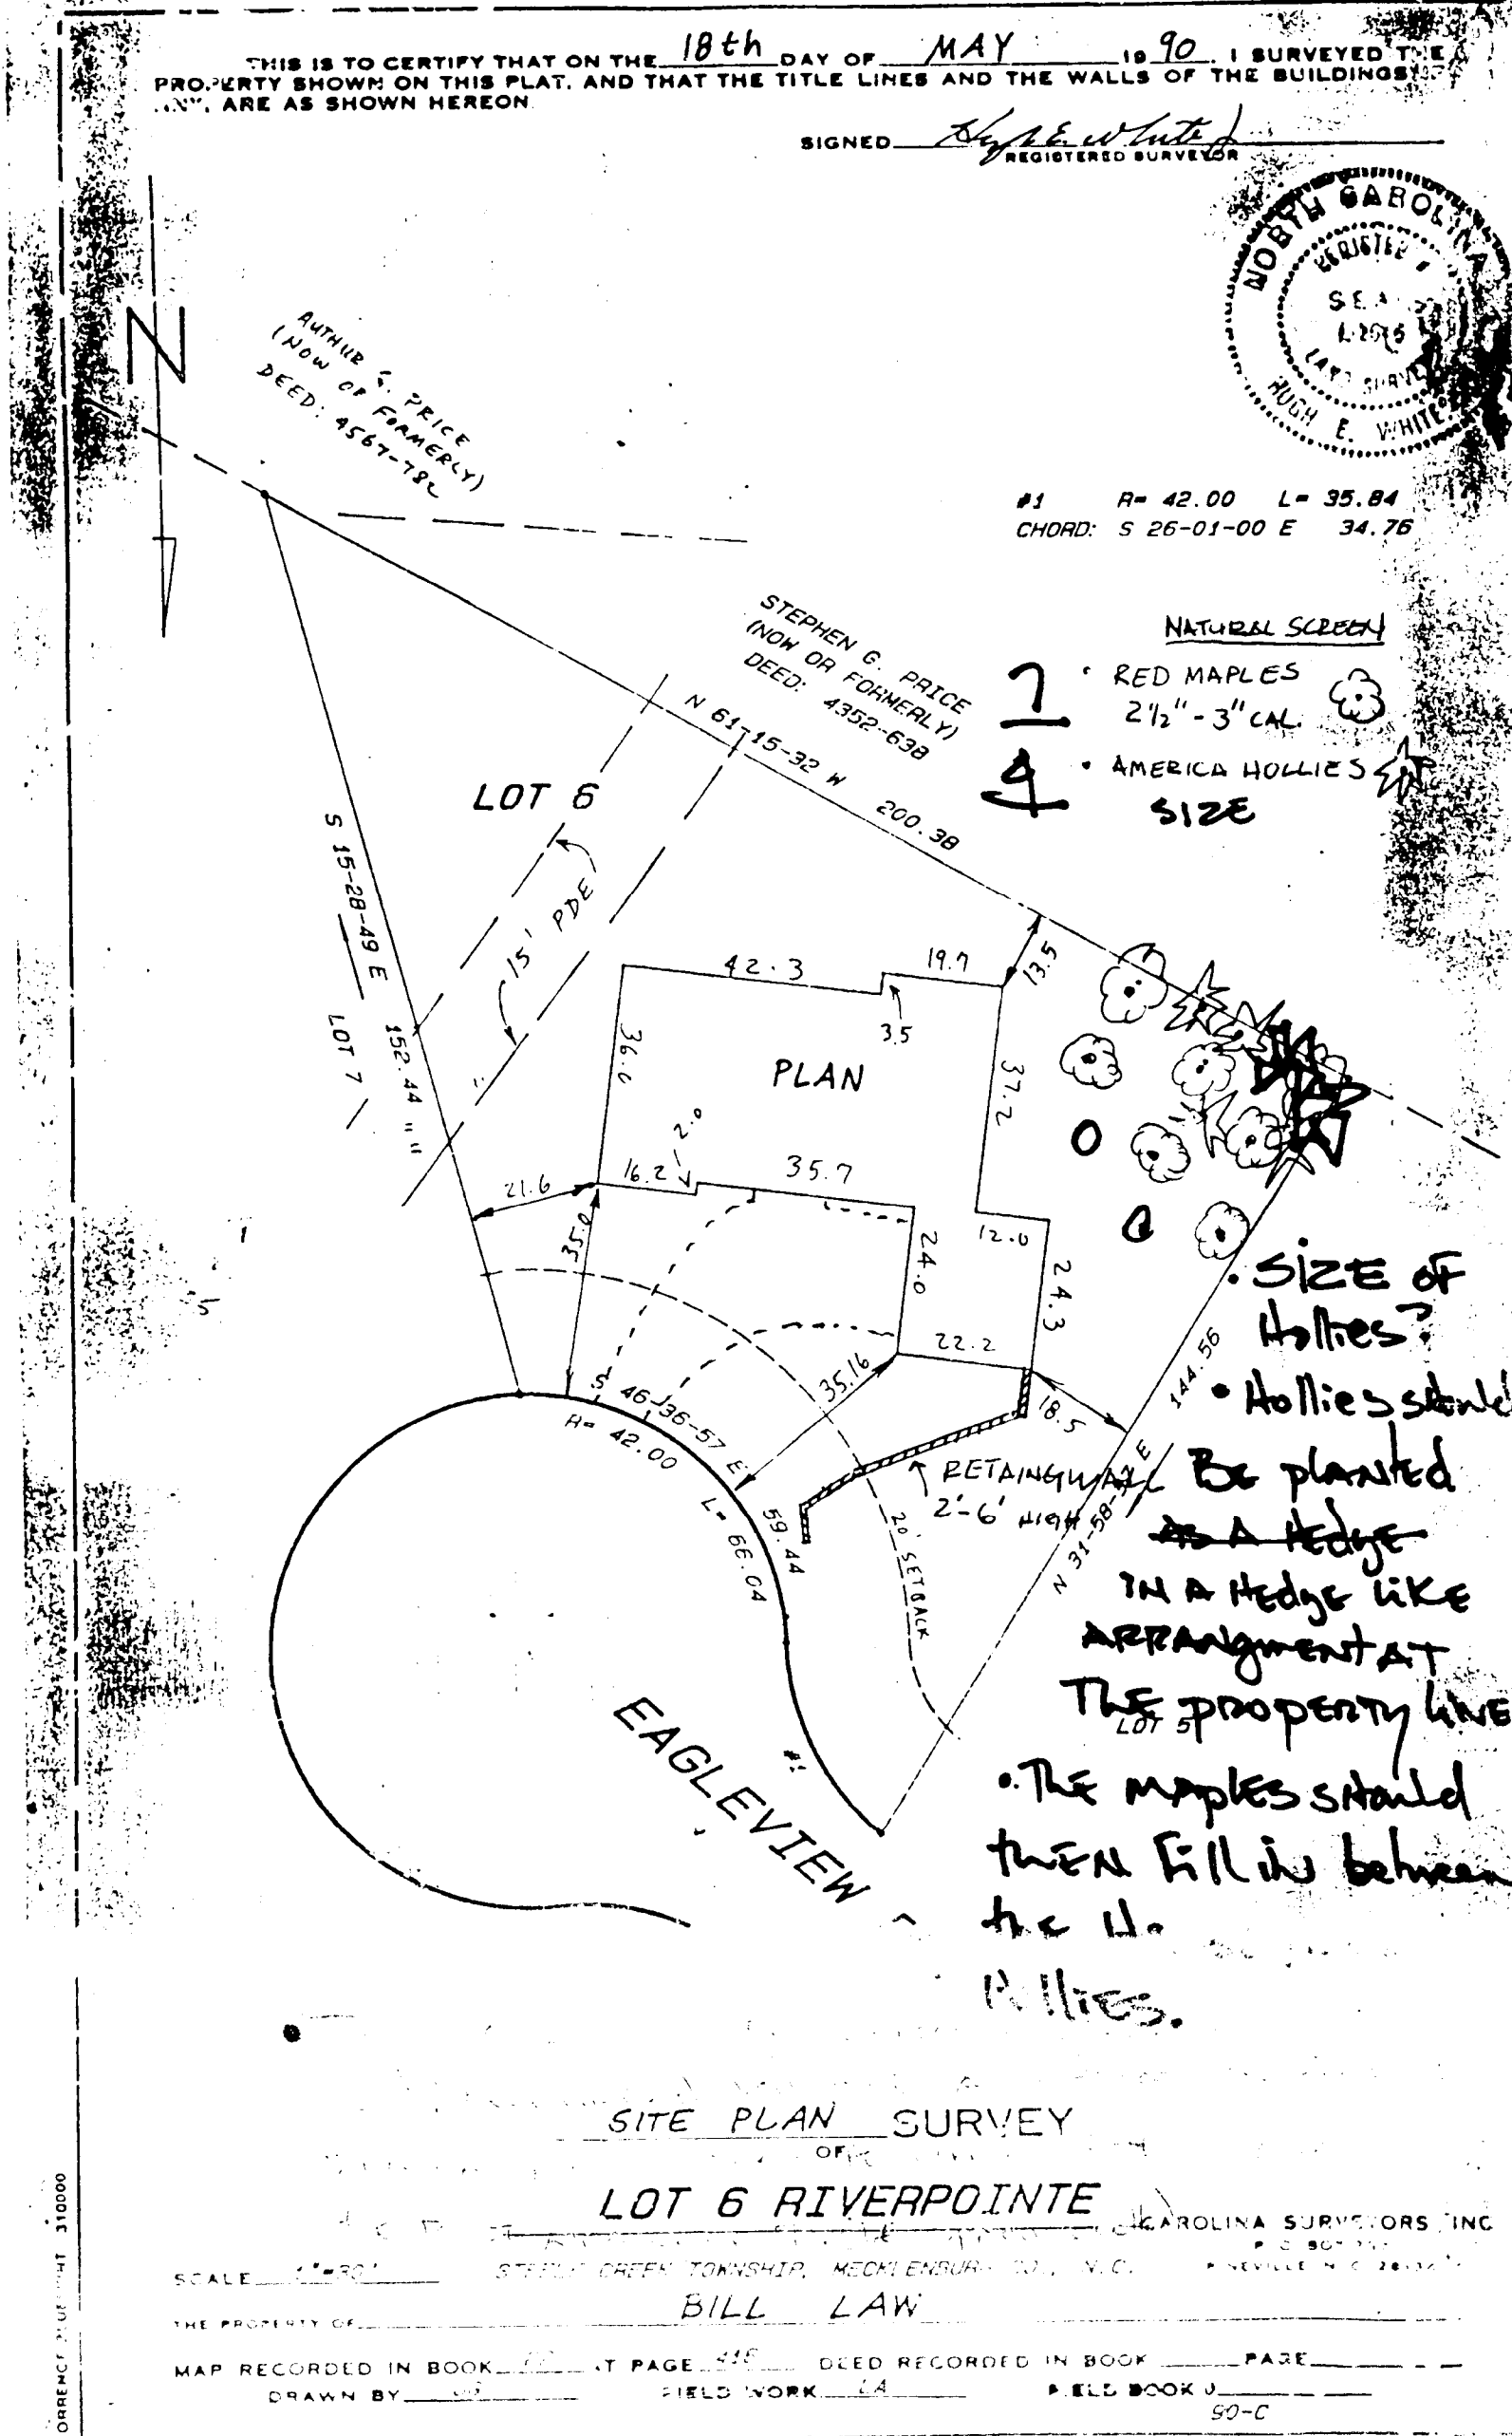 THIS IS TO CERTIFY THAT ON THE 18th DAY OF MAY 19 90. I SURVEYED THE
PROPERTY SHOWN ON THIS PLAT, AND THAT THE TITLE LINES AND THE WALLS OF THE BUILDINGS
ARE AS SHOWN HEREON
SIGNED Hugh E. White
REGISTERED SURVEYOR
NORTH CAROLINA
SEAL
HUGH E. WHITE
N
AUTHUR G. PRICE
(NOW OR FORMERLY)
DEED: 4567-782
#1 R= 42.00 L= 35.84
CHORD: S 26-01-00 E 34.76
STEPHEN G. PRICE
(NOW OR FORMERLY)
DEED: 4352-638
NATURAL SCREEN
7 • RED MAPLES
2½" - 3" CAL.
4 • AMERICA HOLLIES
SIZE
N 61-15-32 W 200.38
LOT 6
S 15-28-49 E 152.44
LOT 7
15' PDE
42.3
19.7
13.5
3.5
36.0
PLAN
37.2
2.0
16.2
35.7
21.6
35.0
24.0
12.0
24.3
22.2
35.16
18.5
144.56
S 46-36-57 E
59.44
R= 42.00
L= 66.04
RETAINGWALL
2'-6' HIGH
20' SETBACK
N 31-58- E
• SIZE OF
Hollies?
• Hollies should
BE planted
AS A HEdgE
IN A HEdgE LIKE
ARRANgmENT AT
THE PROPERTY LINE
LOT 5
• THE MAplES should
thEN Fill in between
the H.
HollIES.
EAGLEVIEW
#1
SITE PLAN SURVEY
OF
LOT 6 RIVERPOINTE
CAROLINA SURVEYORS, INC
SCALE 1"=30'
CREEK TOWNSHIP, MECKLENBURG CO., N.C.
PINEVILLE N.C.
THE PROPERTY OF BILL LAW
MAP RECORDED IN BOOK AT PAGE DEED RECORDED IN BOOK PAGE
DRAWN BY FIELD WORK LA FIELD BOOK
90-C
310000